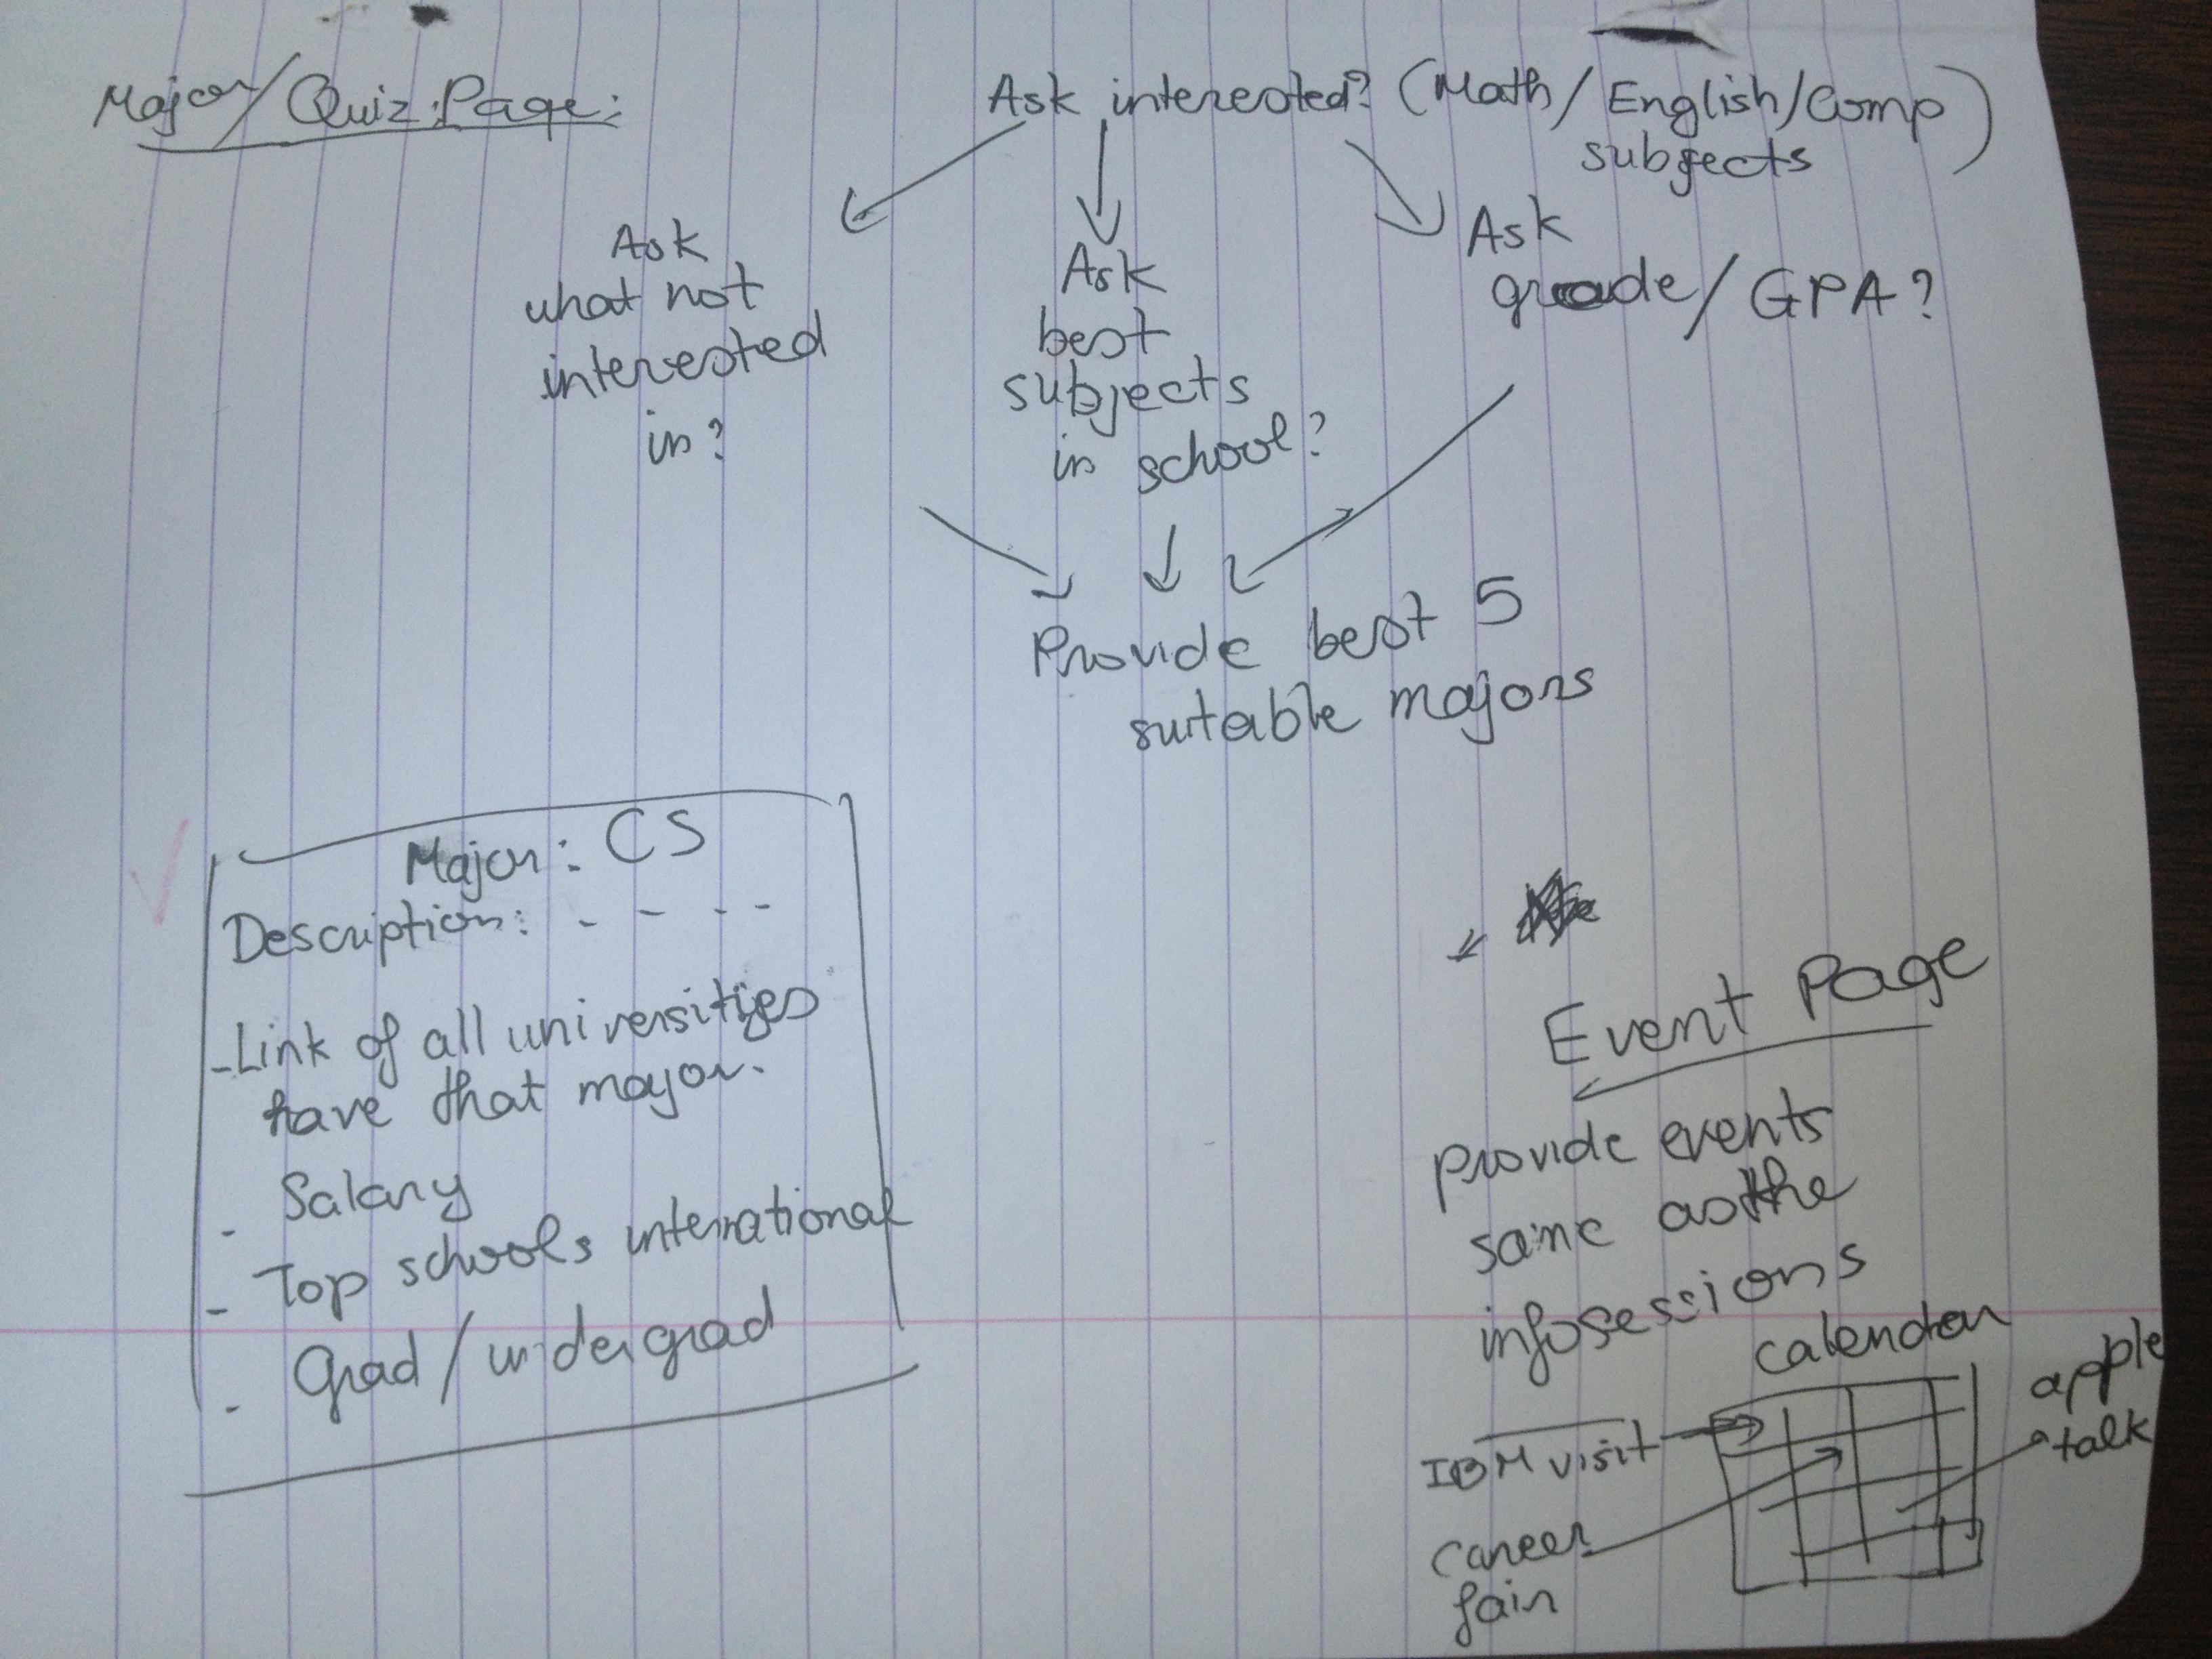 Major/Quiz Page:
Ask interested? (Math/English/Comp
subjects)
Ask
what not
interested
in?
Ask
best
subjects
in school?
Ask
grade/GPA?
Provide best 5
suitable majors
Major: CS
Description: - - - -
- Link of all universities
have that major.
- Salary
- Top schools international
- Grad/undergrad
Event Page
Provide events
same as the
infosessions
calendar
IBM visit
Career
fair
apple
talk